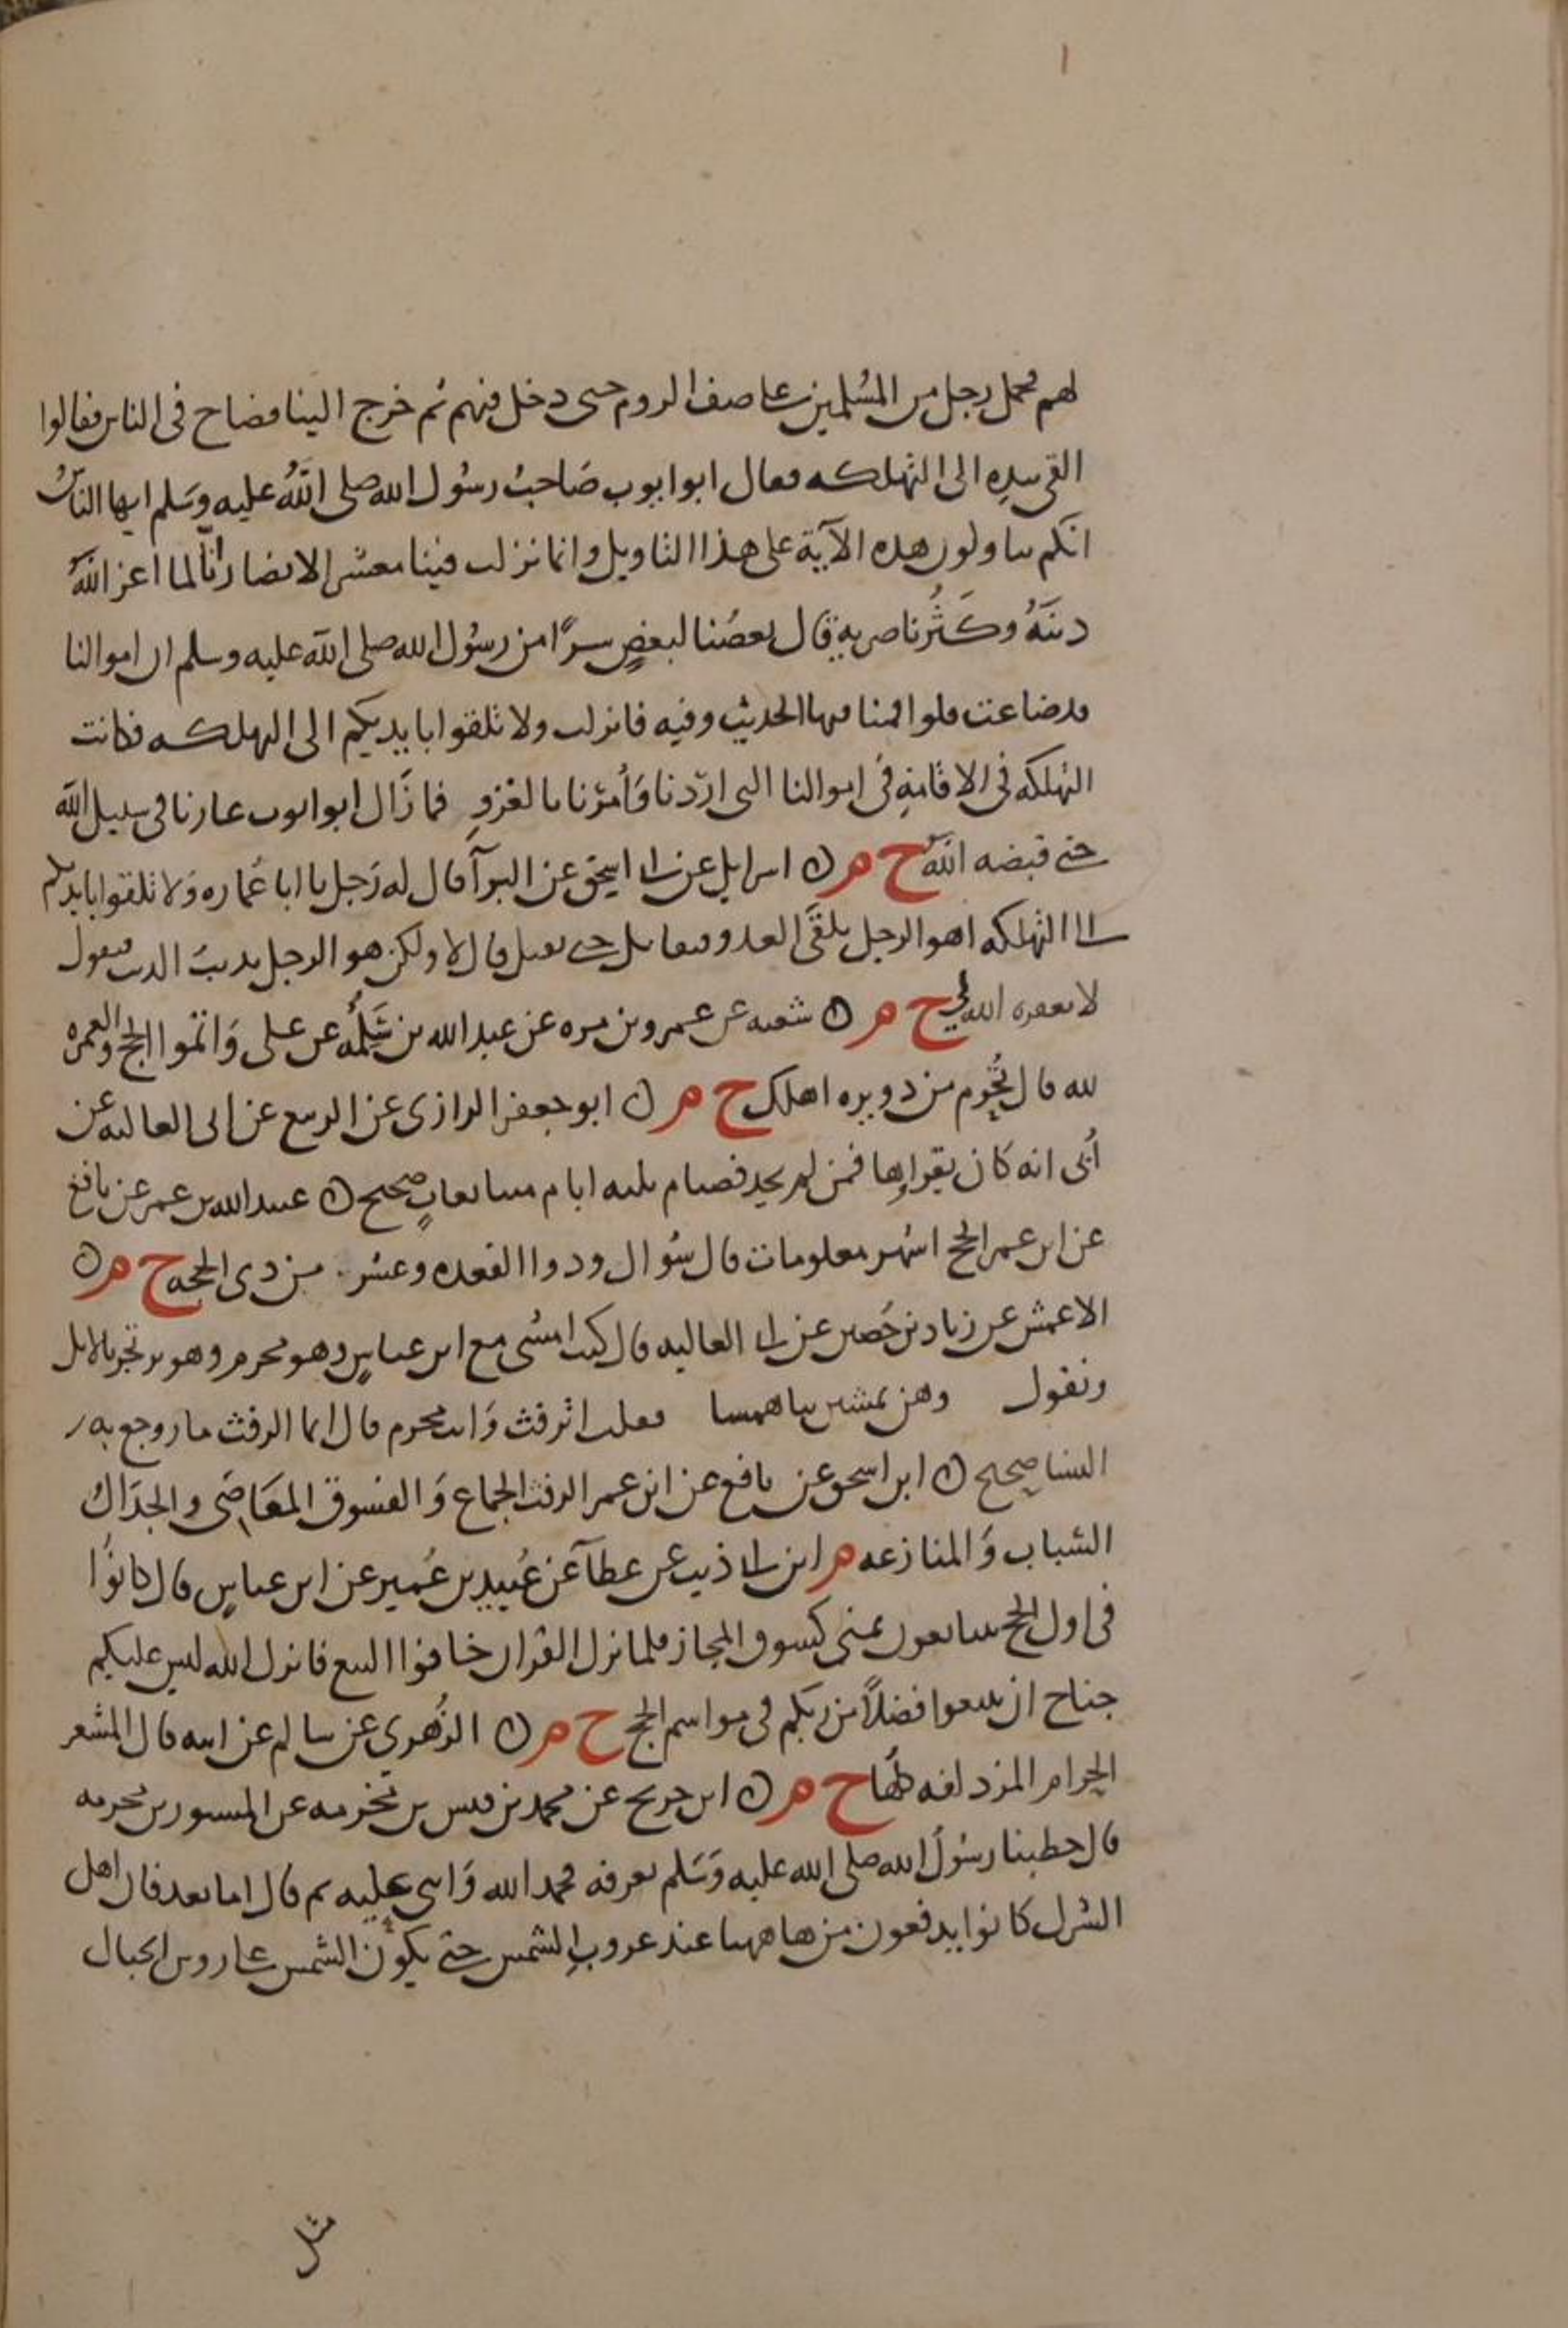 لهم فحمل رجل من المسلمين على صف الروم حتى دخل فيهم ثم خرج الينا فصاح فى الناس فقالوا
القى بيده الى التهلكه فقال ابو ايوب صَاحبُ رسُول الله صلى اللهُ عليه وسَلم ايها الناسُ
انكم تتاولون هذه الآية على هذا التاويل وانما نزلت فينا معشر الانصار انّا لما اعز اللهُ
دينَهُ وكَثُر ناصريه قال بعضُنا لبعضٍ سرًا من رسُول الله صلى الله عليه وسلم ان اموالنا
قد ضاعت فلو اقمنا فيها الحديث وفيه فانزلت ولا تلقوا بايديكم الى التهلكه فكانت
التهلكه فى الاقامةِ فى اموالنا التى اردنا وَأمرنا بالغزوِ فما زَال ابو ايوب غازيا فى سبيل الله
حتى قبضه اللهُ ح م ن اسرايل عن ابى اسحق عن البرآ قال له رَجل يا ابا عُماره وَلا تلقوا بايديكم
الى التهلكه اهو الرجل يلقَى العدو فيقاتل حتى يقتل قال لا ولكن هو الرجل يذنبُ الذنب فيقول
لا يغفره الله لى ح م ن شعبه عن عمرو بن مره عن عبد الله بن سَلمُه عن على وَاتموا الحج والعمره
لله قال تُحرِم من دويره اهلك ح م ن ابو جعفر الرازى عن الربيع عن ابى العاليه عن
أبى انه كان يقراها فمن لم يجد فصيام ثلثه ايام متتابعاتٍ صحيح ن عبيد الله بن عمر عن نافع
عن ابن عمر الحج اشهر معلومات قال شوال وذوا القعده وعشر من ذى الحجه ح م ن
الاعمش عن زياد بن حُصين عن ابى العاليه قال كنت امشى مع ابن عباسٍ وهو محرم وهو يرتجز بالابل
ويقول وهن يمشين بنا هميسا فقلت اترفث وَانت محرم قال انما الرفث ما روجع به
النسا صحيح ن ابن اسحق عن نافع عن ابن عمر الرفث الجماع وَالفسوق المعَاصَى والجدَالُ
السباب وَالمنازعه م ابن ابى ذيب عن عطآ عن عُبيد بن عُمير عن ابن عباسٍ قال كانوُا
فى اول الحج يتبايعون بمنى كسوق المجاز فلما نزل القران خافوا البيع فانزل الله ليس عليكم
جناح ان تبتغوا فضلاً من ربكم فى مواسم الحج ح م ن الزُهرى عن سالم عن ابيه قال المشعر
الحرام المزدلفه كلُها ح م ن ابن جريج عن محمد بن قيس بن مخرمه عن المسور بن مخرمه
قال خطبنا رسُولُ الله صلى الله عليه وَسَلم بعرفه فحمد الله وَاثنى عليه ثم قال اما بعد فان اهل
الشرك كانوا يدفعون من هاهنا عند غروبِ الشمس حتى يكون الشمس على روس الجبال
مثل